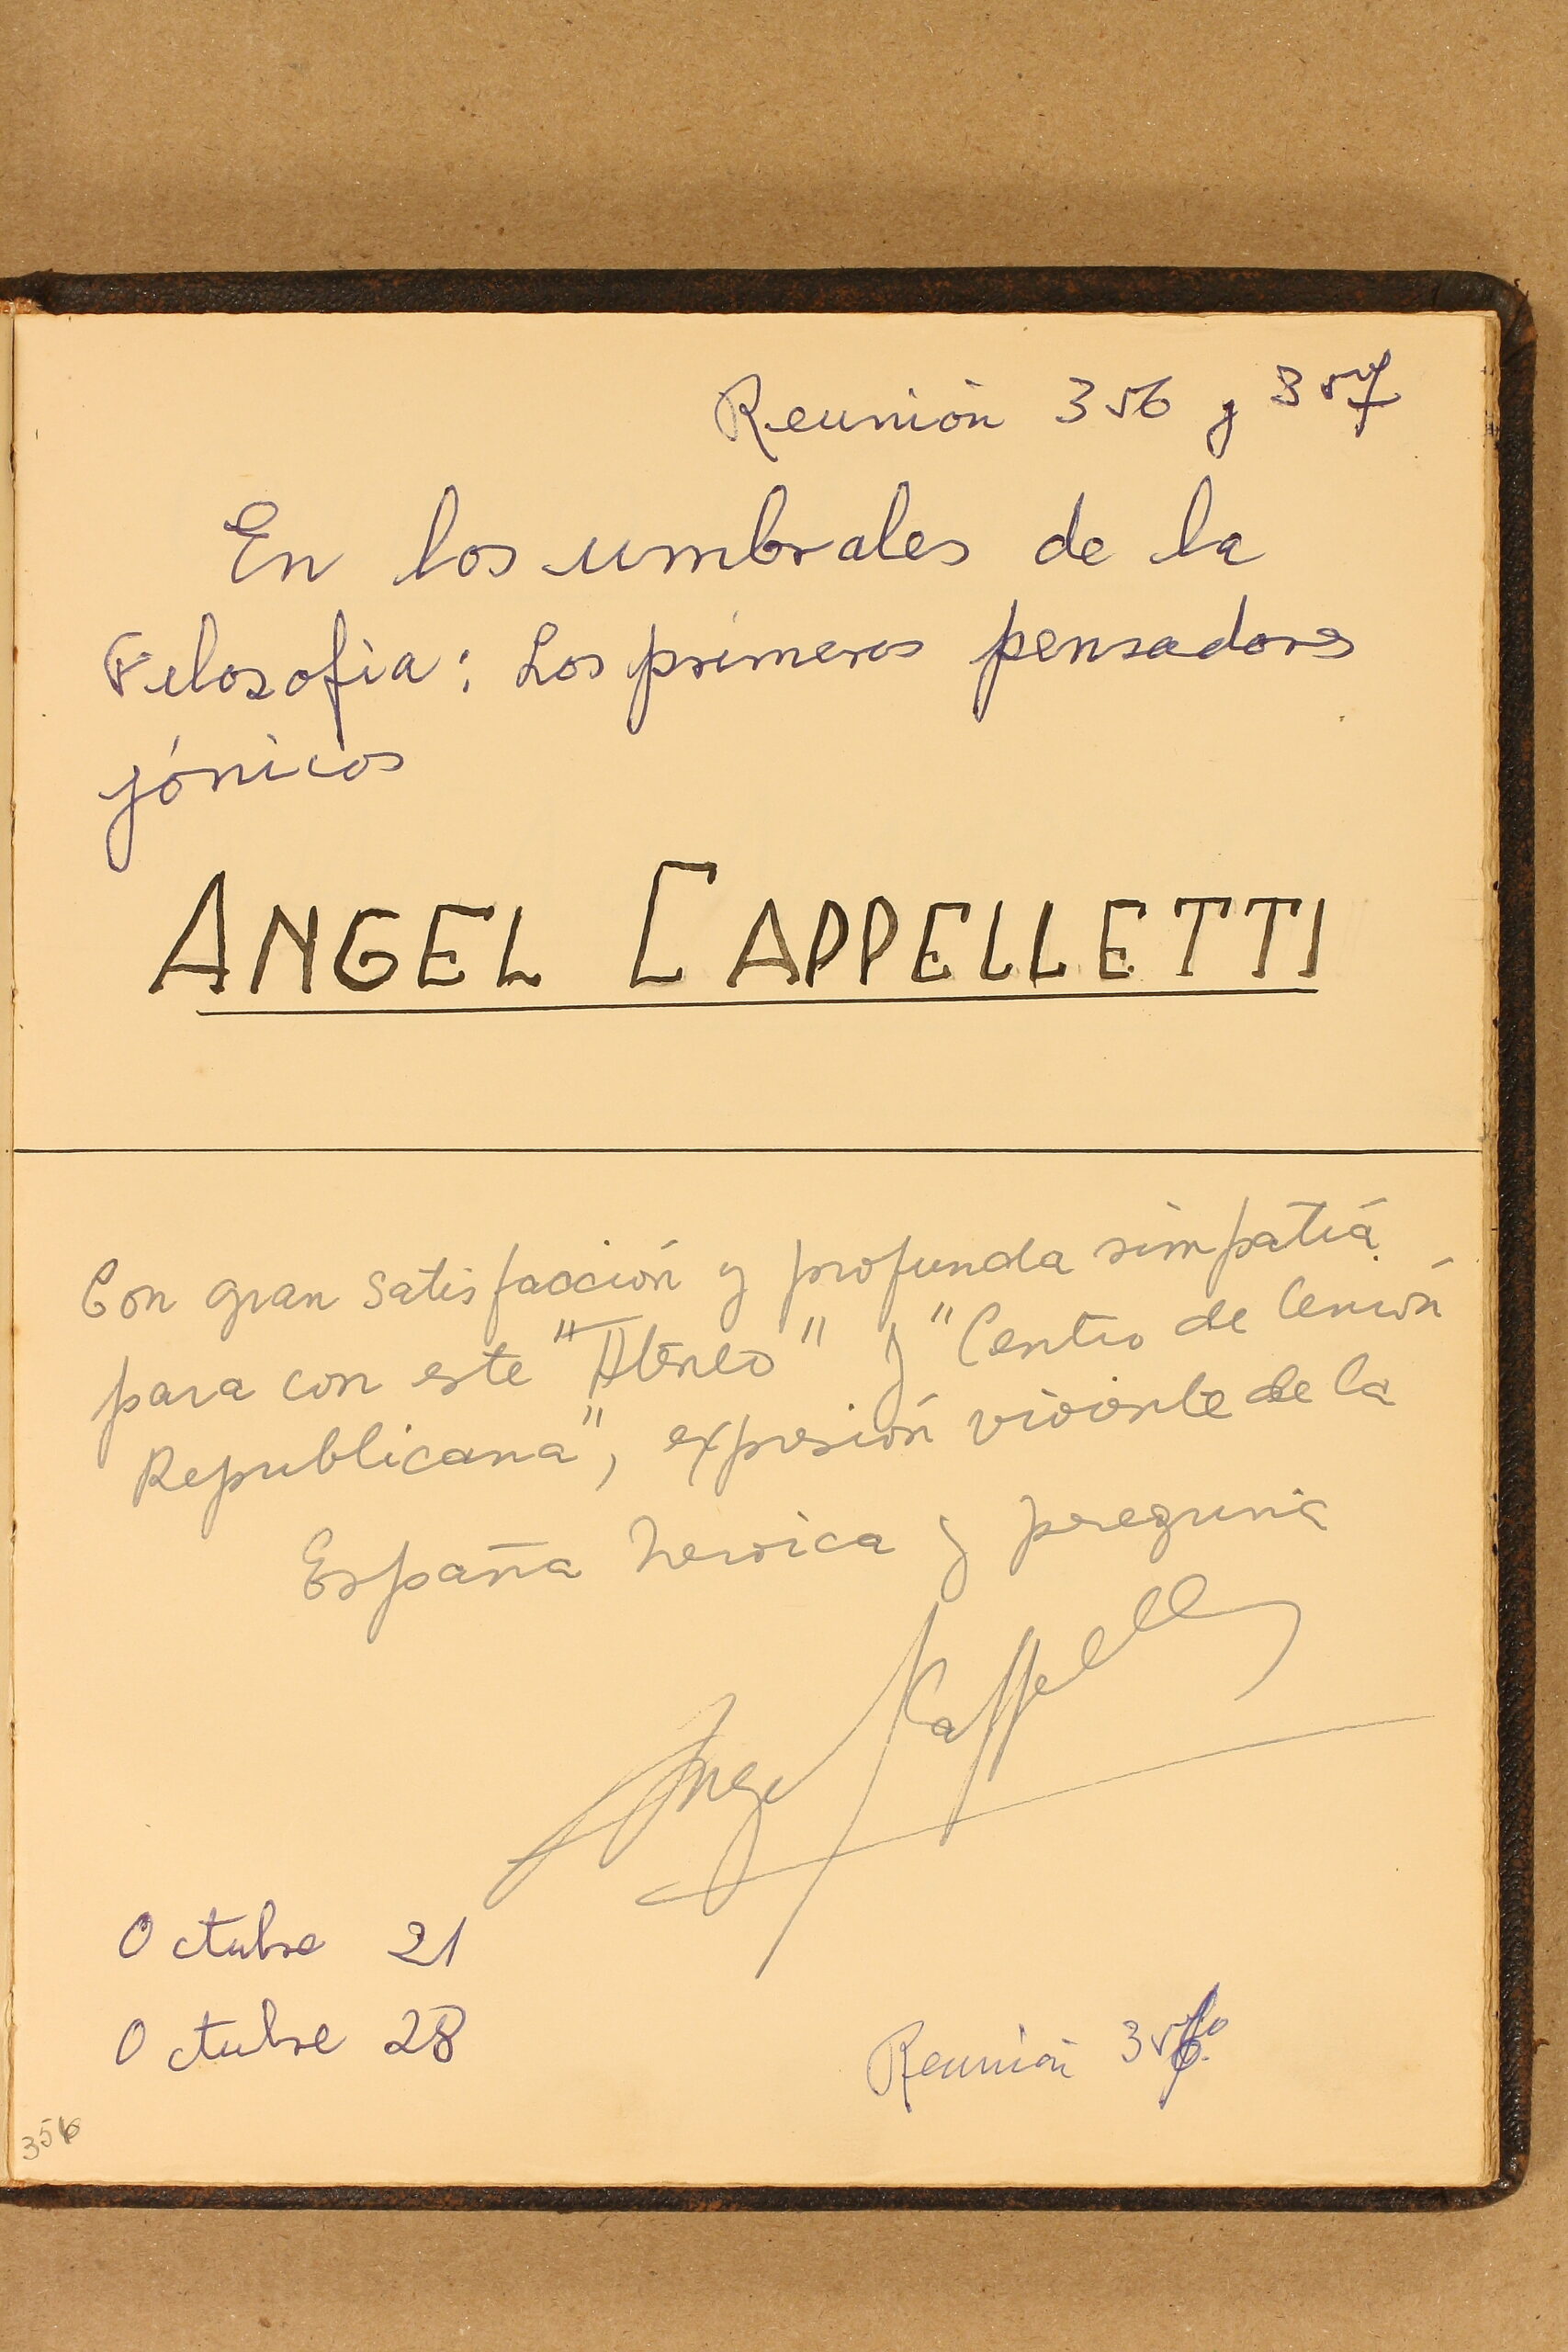 Reunión 356 y 357
En los umbrales de la
Filosofia: Los primeros pensadores
jónicos
ANGEL CAPPELLETTI
Con gran satisfacción y profunda simpatía
para con este "Ateneo" y "Centro de Unión
Republicana", expresión viviente de la
España heroica y peregrina
Angel Cappelletti
Octubre 21
Octubre 28
Reunión
356